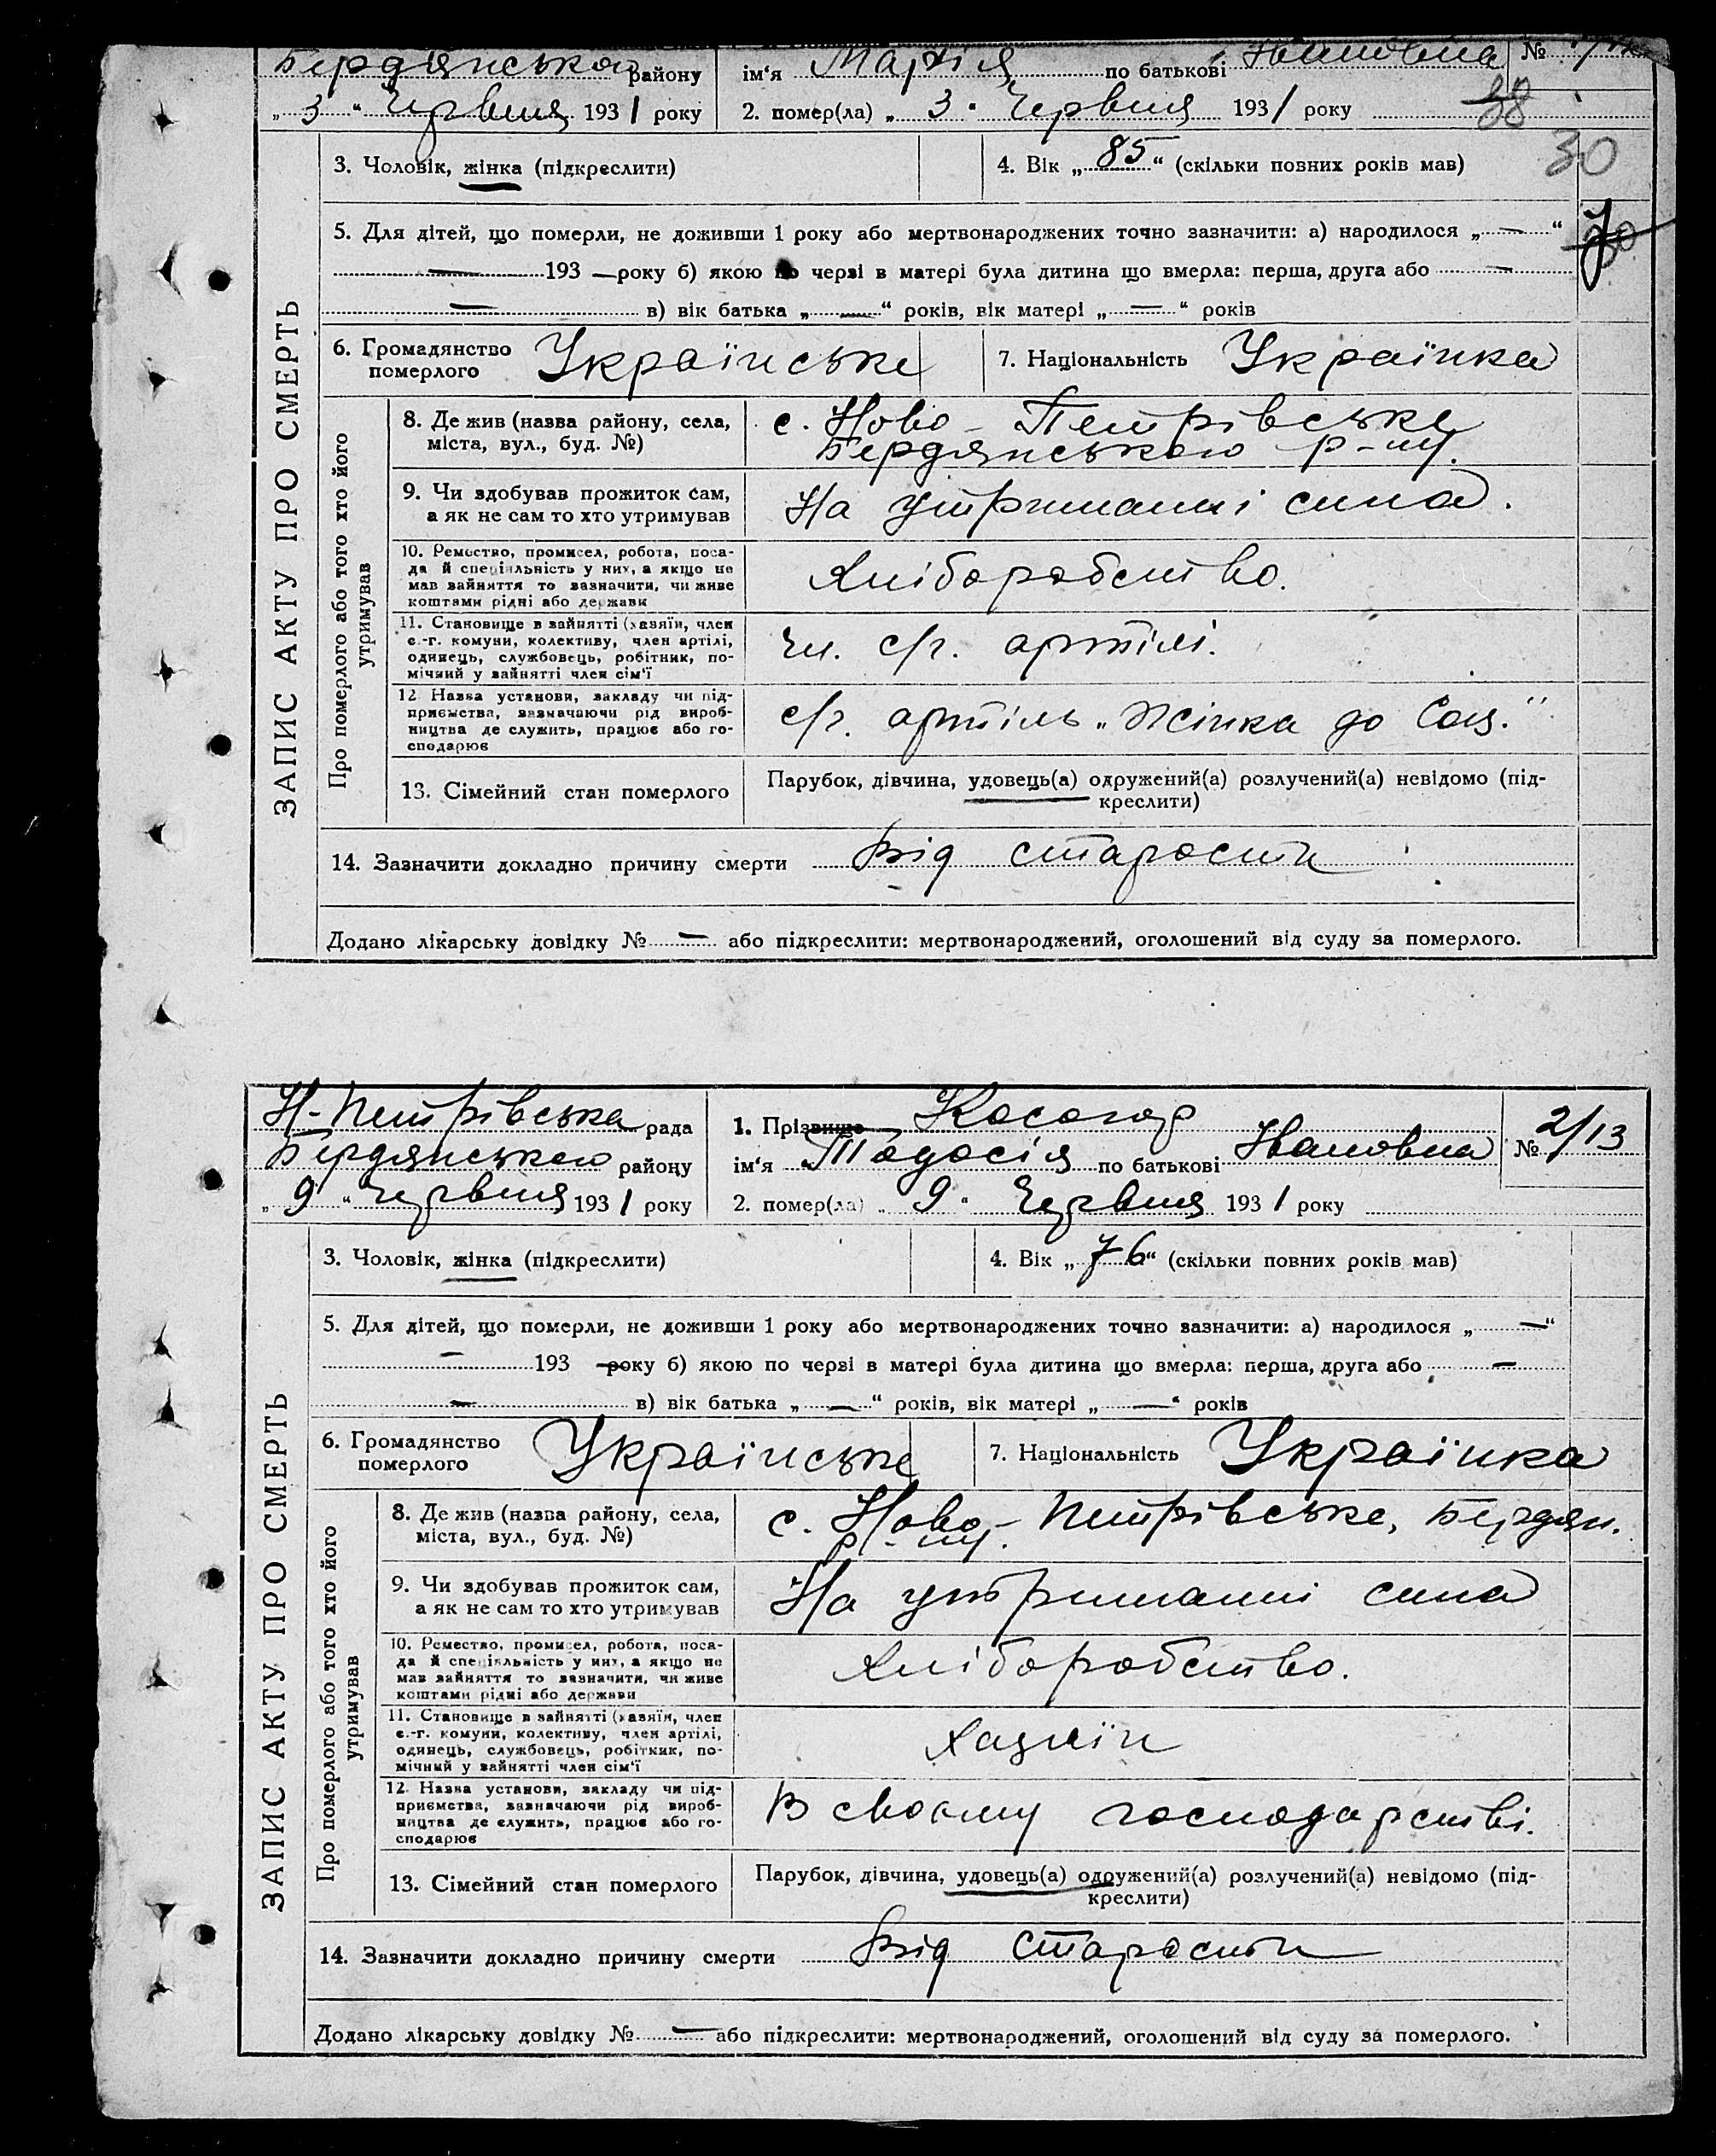 Бердянського району ім‘я Марія по батькові Ивановна №
„ 3 “ Червня 1931 року 2. помер(ла) „ 3 “ Червня 1931 року 38
30
ЗАПИС АКТУ ПРО СМЕРТЬ
3. Чоловік, жінка (підкреслити) 4. Вік „ 85 “ (скільки повних років мав)
5. Для дітей, що померли, не доживши 1 року або мертвонароджених точно зазначити: а) народилося „ — “
— 193 — року б) якою по черзі в матері була дитина що вмерла: перша, друга або —
— в) вік батька „ — “ років, вік матері „ — “ років
6. Громадянство померлого Українське 7. Національність Українка
Про померлого або того хто його утримував
8. Де жив (назва району, села, міста, вул., буд. №) с. Ново-Петрівське
Бердянського р-ну.
9. Чи здобував прожиток сам, а як не сам то хто утримував На утриманні сина.
10. Ремество, промисел, робота, поса-
да й спеціяльність у них, а якщо не
мав зайняття то зазначити, чи живе
коштами рідні або держави
Хліборобство.
11. Становище в зайнятті (хазяїн, член
с.-г. комуни, колективу, член артілі,
одинець, службовець, робітник, по-
мічний у зайнятті член сім‘ї
Чл. с/г. артілі.
12. Назва установи, закладу чи під-
приємства, зазначаючи рід вироб-
ництва де служить, працює або го-
сподарює
с/г. артіль „Жінка до Соц.“
13. Сімейний стан померлого Парубок, дівчина, удовець(а) одружений(а) розлучений(а) невідомо (під-
креслити)
14. Зазначити докладно причину смерти Від старости
Додано лікарську довідку № — або підкреслити: мертвонароджений, оголошений від суду за померлого.
Н-Петрівська рада 1. Прізвище Косогор № 2/13
Бердянського району ім‘я Тодосія по батькові Ивановна
„ 9 “ Червня 1931 року 2. помер(ла) „ 9 “ Червня 1931 року
ЗАПИС АКТУ ПРО СМЕРТЬ
3. Чоловік, жінка (підкреслити) 4. Вік „ 76 “ (скільки повних років мав)
5. Для дітей, що померли, не доживши 1 року або мертвонароджених точно зазначити: а) народилося „ — “
— 193 — року б) якою по черзі в матері була дитина що вмерла: перша, друга або —
— в) вік батька „ — “ років, вік матері „ — “ років
6. Громадянство померлого Українське 7. Національність Українка
Про померлого або того хто його утримував
8. Де жив (назва району, села, міста, вул., буд. №) с. Ново-Петрівське, Бердян.
р-ну.
9. Чи здобував прожиток сам, а як не сам то хто утримував На утриманні сина
10. Ремество, промисел, робота, поса-
да й спеціяльність у них, а якщо не
мав зайняття то зазначити, чи живе
коштами рідні або держави
Хліборобство.
11. Становище в зайнятті (хазяїн, член
с.-г. комуни, колективу, член артілі,
одинець, службовець, робітник, по-
мічний у зайнятті член сім‘ї
Хазяїн
12. Назва установи, закладу чи під-
приємства, зазначаючи рід вироб-
ництва де служить, працює або го-
сподарює
В своєму господарстві.
13. Сімейний стан померлого Парубок, дівчина, удовець(а) одружений(а) розлучений(а) невідомо (під-
креслити)
14. Зазначити докладно причину смерти Від старости
Додано лікарську довідку № — або підкреслити: мертвонароджений, оголошений від суду за померлого.